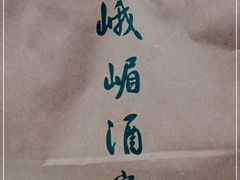 峨嵋酒